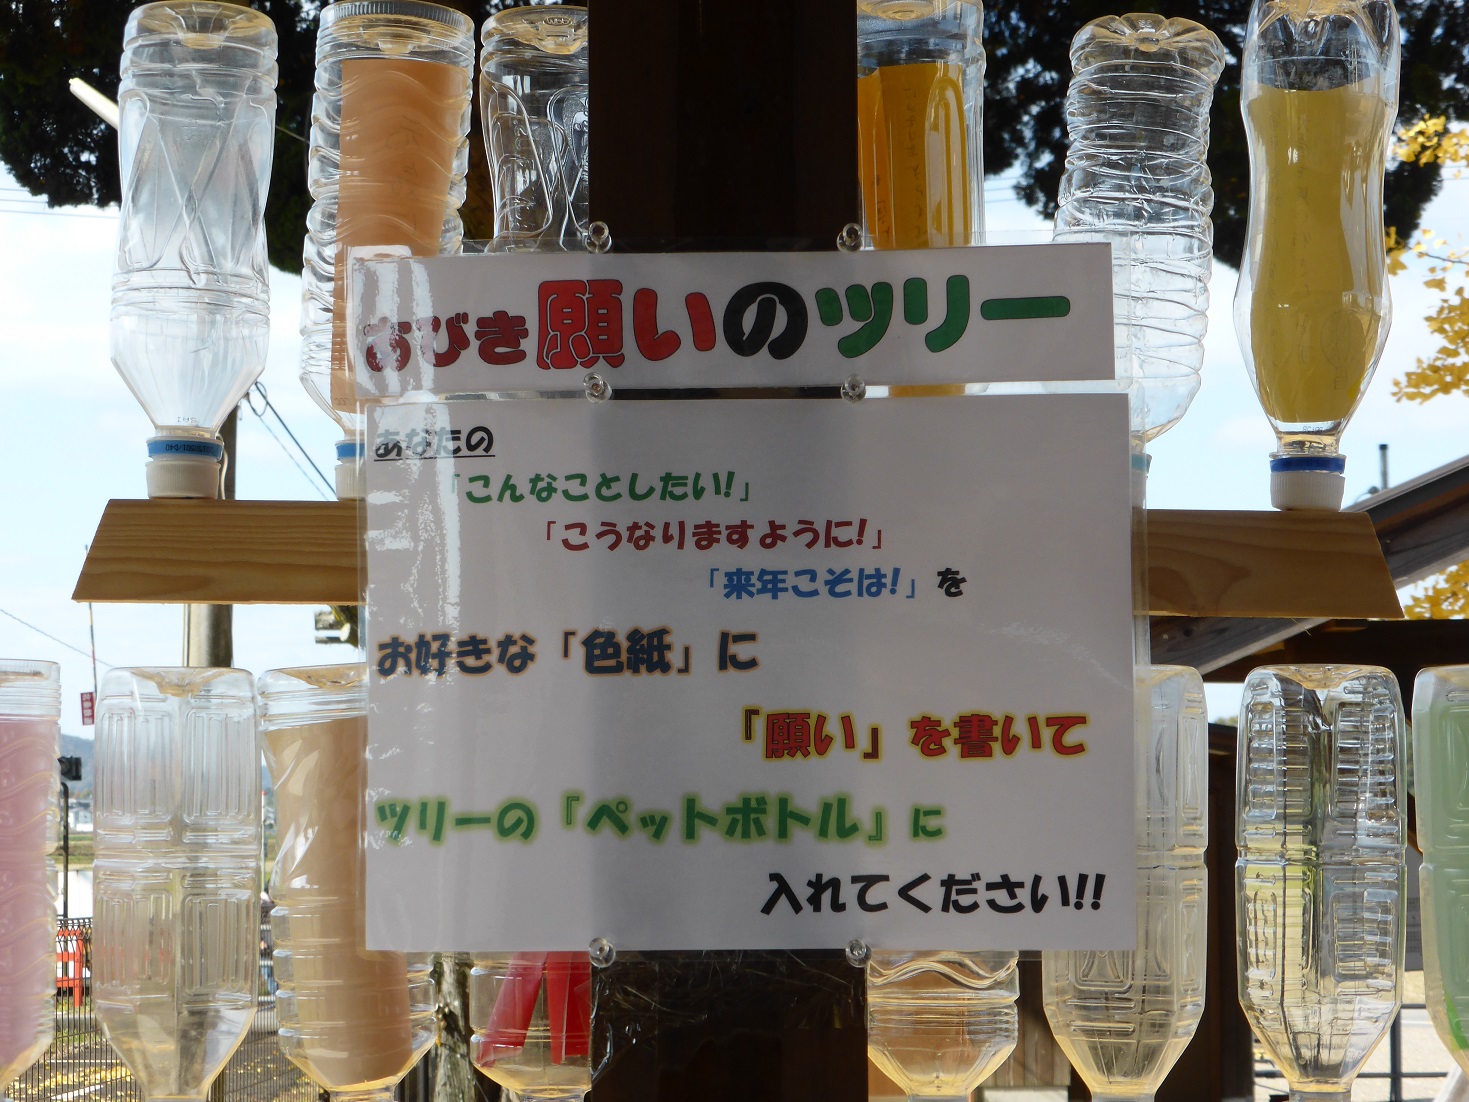 あびき願いのツリー
あなたの
「こんなことしたい!」
「こうなりますように!」
「来年こそは!」を
お好きな「色紙」に
『願い』を書いて
ツリーの『ペットボトル』に
入れてください!!